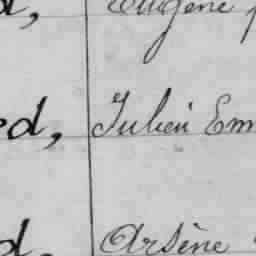 d, Eugène
ed, Julien Em
d. Arsène